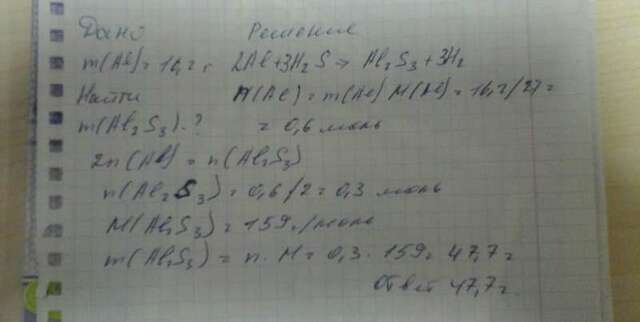 Дано Решение
m(Al) = 16,2 г 2Al+3H₂S → Al₂S₃+3H₂
Найти n(Al) = m(Al)/M(Al) = 16,2/27 =
m(Al₂S₃)-? = 0,6 моль
2n(Al) = n(Al₂S₃)
n(Al₂S₃) = 0,6/2 = 0,3 моль
M(Al₂S₃) = 159г/моль
m(Al₂S₃) = n · M = 0,3 · 159 = 47,7г
Ответ 47,7г